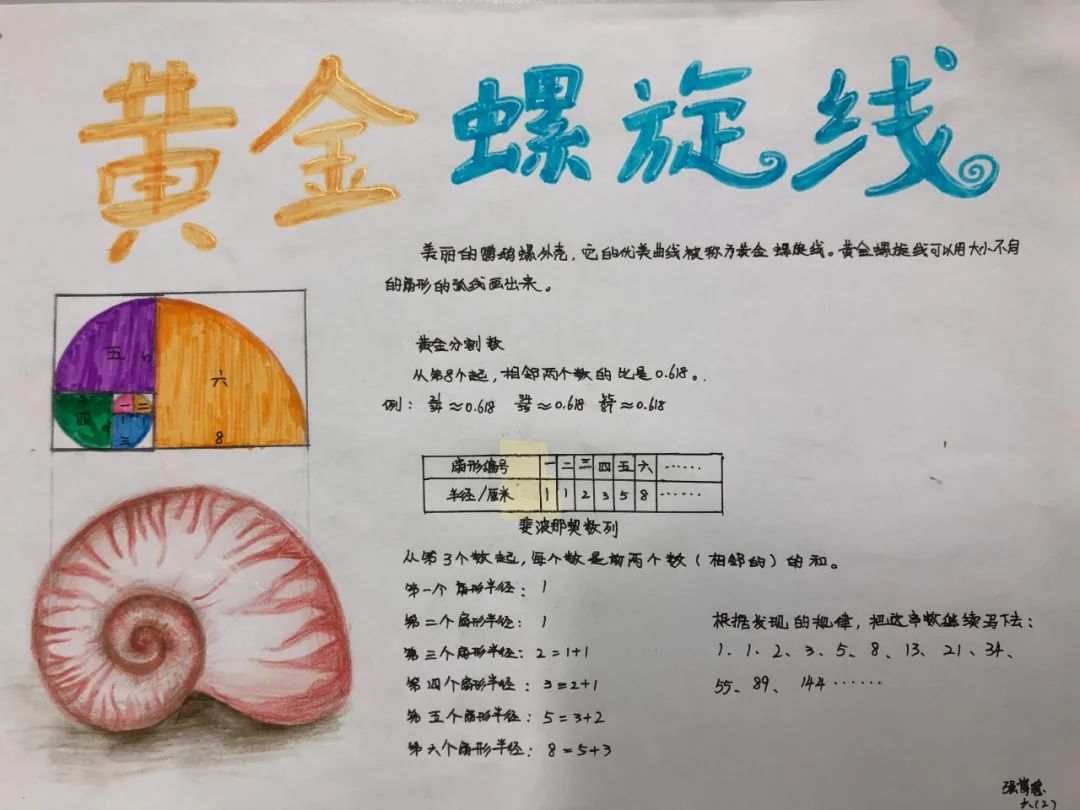 黄金螺旋线
美丽的鹦鹉螺外壳，它的优美曲线被称为黄金螺旋线。黄金螺旋线可以用大小不同
的扇形的弧线画出来。
黄金分割数
从第8个起，相邻两个数的比是0.618。
例： 21/34≈0.618 34/55≈0.618 55/89≈0.618
五 5
六
8
3
四
一 二
1 1
2
三
扇形编号 一 二 三 四 五 六 ……
半径/厘米 1 1 2 3 5 8 ……
斐波那契数列
从第3个数起，每个数是前两个数（相邻的）的和。
第一个扇形半径： 1
第二个扇形半径： 1
第三个扇形半径：2=1+1
第四个扇形半径：3=2+1
第五个扇形半径：5=3+2
第六个扇形半径：8=5+3
根据发现的规律，把这串数继续写下去：
1、1、2、3、5、8、13、21、34、
55、89、144……
六(2)